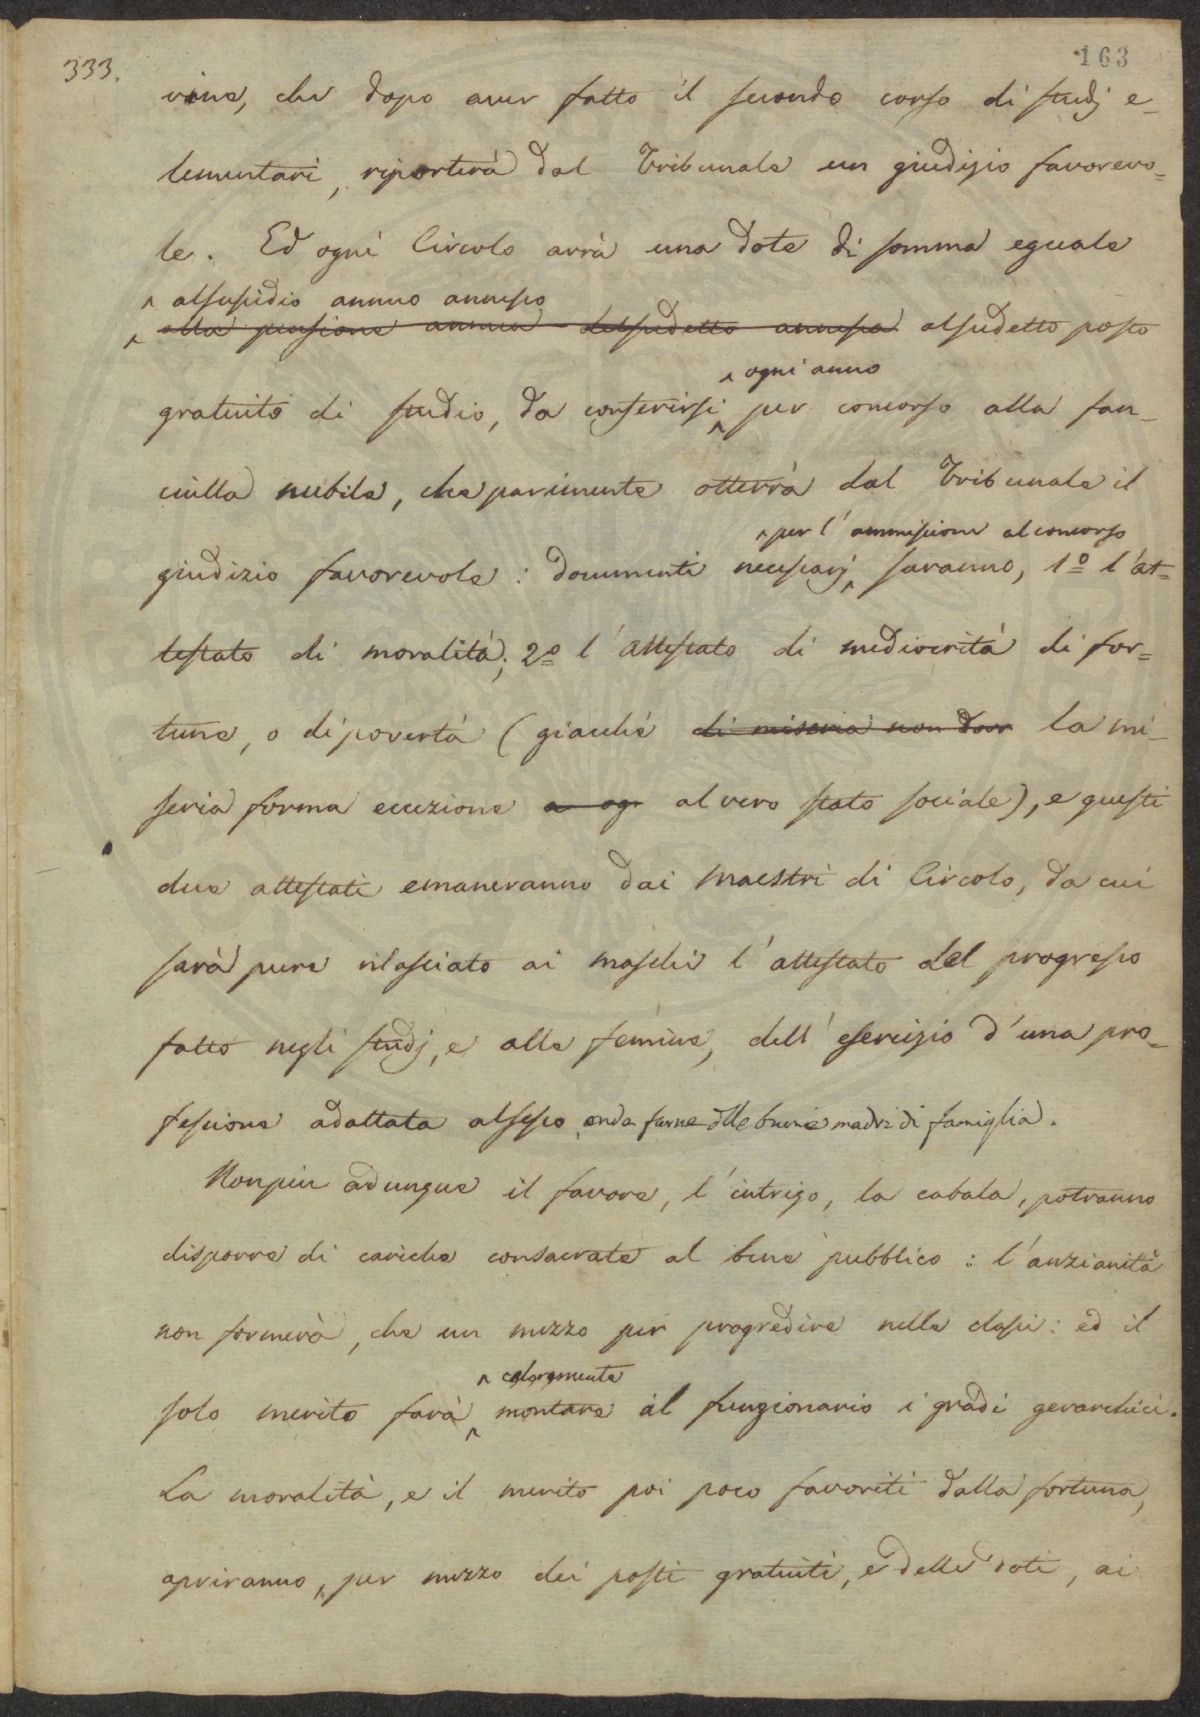 333.
163
vine, che dopo aver fatto il secondo corso di studj e-
lementari, riporterà dal Tribunale un giudizio favorevo=
le. Ed ogni Circolo avrà una dote di somma eguale
^ al susidio annuo annesso
^ alla pensione annua del sudetto annessa al sudetto posto
^ ogni anno
gratuito di studio, da conferirsi ^ per concorso alla fan-
ciulla nubile, che parimente otterrà dal Tribunale il
^ per l'ammissione al concorso
giudizio favorevole: documenti necessarj ^ saranno, 1º l'at=
testato di moralità; 2º l'attestato di mediocrità di for=
tune, o di povertà (giacchè di miseria non dovr la mi-
seria forma eccezione a og al vero stato sociale), e questi
due attestati emaneranno dai Maestri di Circolo, da cui
sarà pure rilasciato ai maschi l'attestato del progresso
fatto negli studj, e alle femine, dell'esercizio d'una pro=
fessione adattata al sesso, onde farne delle buone madri di famiglia.
Non più adunque il favore, l'intrigo, la cabala, potranno
disporre di cariche consacrate al bene pubblico: l'anzianità
non formerà, che un mezzo per progredire nelle classi: ed il
^ celeremente
solo merito farà ^ montare al funzionario i gradi gerarchici.
La moralità, e il merito poi poco favoriti dalla fortuna,
apriranno, per mezzo dei posti gratuiti, e delle doti, ai